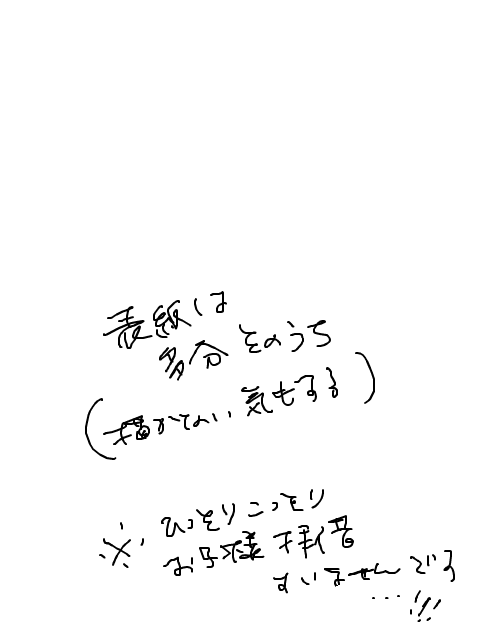 表紙は
多分そのうち
(描かない気もする)
※ひっそりこっそり
お子様拝借
すいませんでる
...!!!